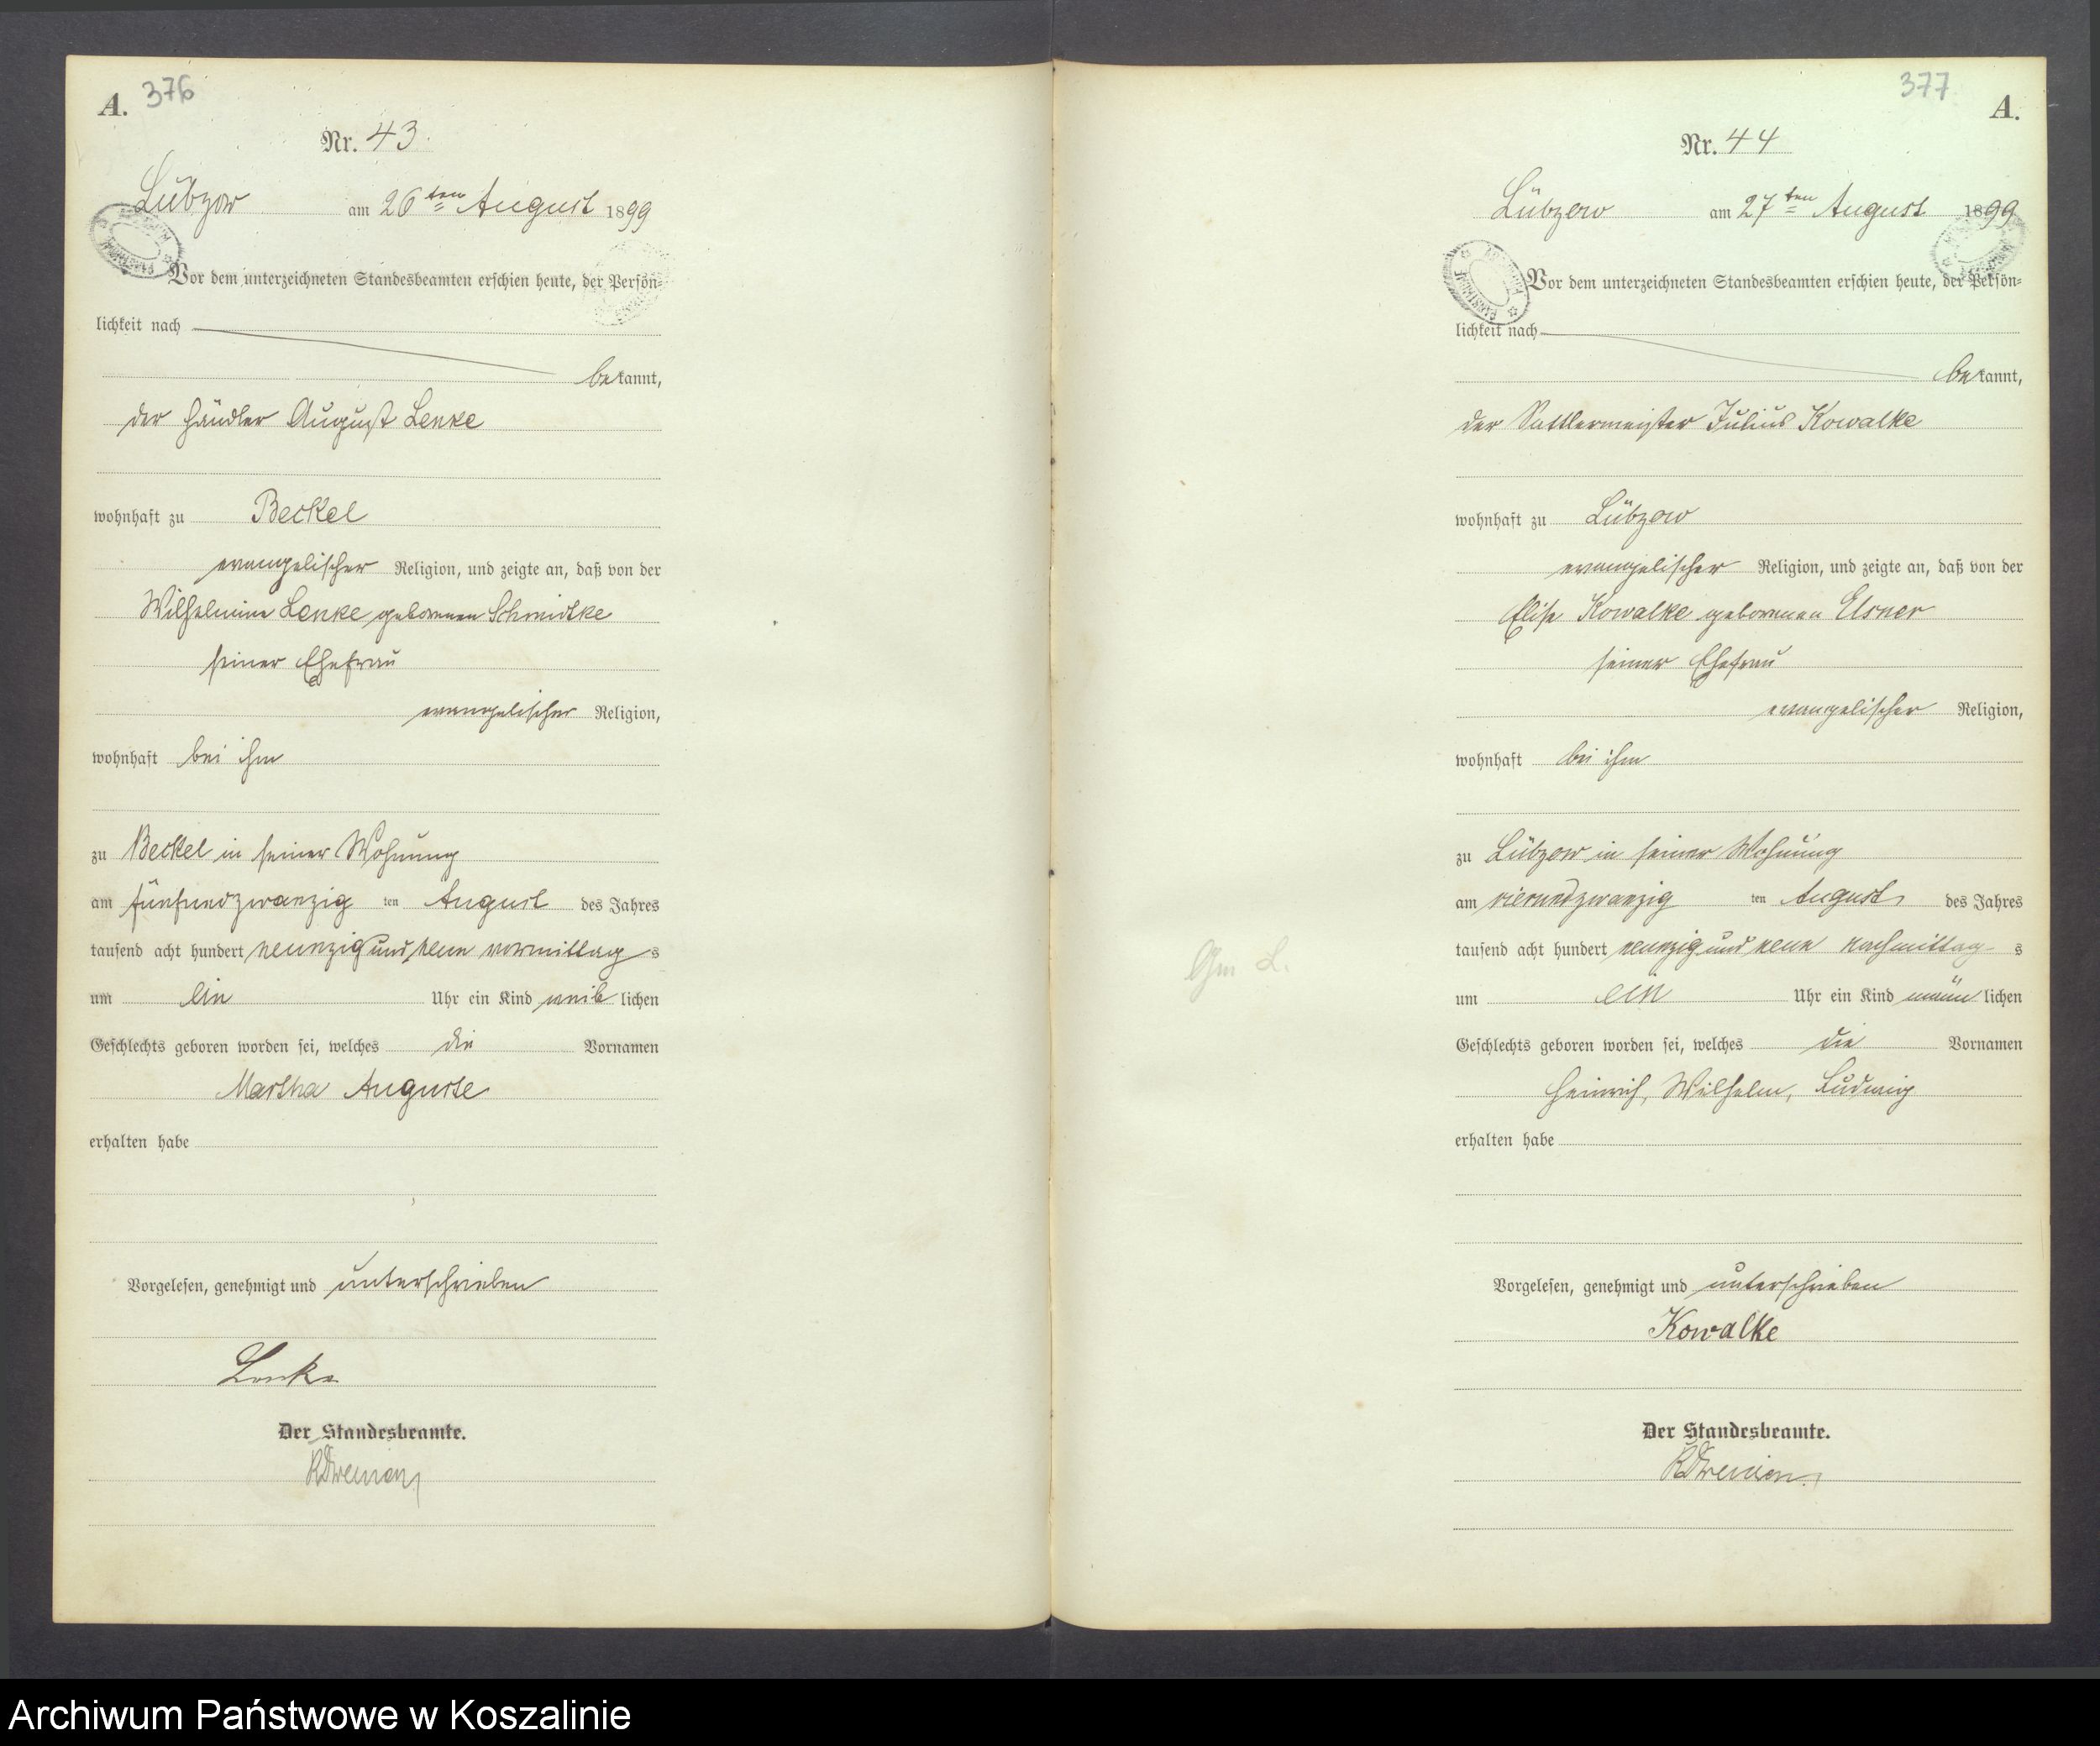 A. 376
Nr. 43.
Lübzow am 26ten August 1899
Vor dem unterzeichneten Standesbeamten erschien heute, der Persön-
lichkeit nach
bekannt,
der Händler August Lenke
wohnhaft zu Beckel
evangelischer Religion, und zeigte an, daß von der
Wilhelmine Lenke geborenen Schmidtke
seiner Ehefrau
evangelischer Religion,
wohnhaft bei ihm
zu Beckel in seiner Wohnung
am fünfundzwanzig ten August des Jahres
tausend acht hundert neunzig und neun vormittag s
um ein Uhr ein Kind weib lichen
Geschlechts geboren worden sei, welches die Vornamen
Martha Auguste
erhalten habe
Vorgelesen, genehmigt und unterschrieben
Lenke
Der Standesbeamte.
377 A.
Nr. 44
Lübzow am 27ten August 1899
Vor dem unterzeichneten Standesbeamten erschien heute, der Persön-
lichkeit nach
bekannt,
der Sattlermeister Julius Kowalke
wohnhaft zu Lübzow
evangelischer Religion, und zeigte an, daß von der
Elise Kowalke geborenen Elsner
seiner Ehefrau
evangelischer Religion,
wohnhaft bei ihm
zu Lübzow in seiner Wohnung
am vierundzwanzig ten August des Jahres
tausend acht hundert neunzig und neun nachmittag s
um ein Uhr ein Kind männ lichen
Geschlechts geboren worden sei, welches die Vornamen
Heinrich, Wilhelm, Ludwig
erhalten habe
Vorgelesen, genehmigt und unterschrieben
Kowalke
Der Standesbeamte.
Archiwum Państwowe w Koszalinie